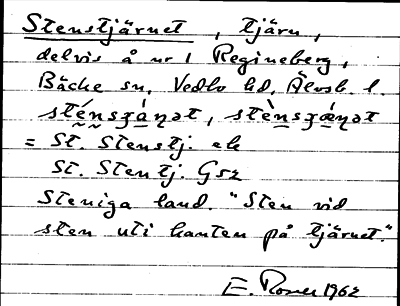 Stenstjärnet, tjärn,
delvis å nr 1 Regineberg,
Bäcke sn, Vedbo hd, Älvsb. l.
= St. Stenstj. ek
St. Stentj. Gsz
Steniga land. "Sten vid
sten uti kanten på tjärnet."
E. 1962